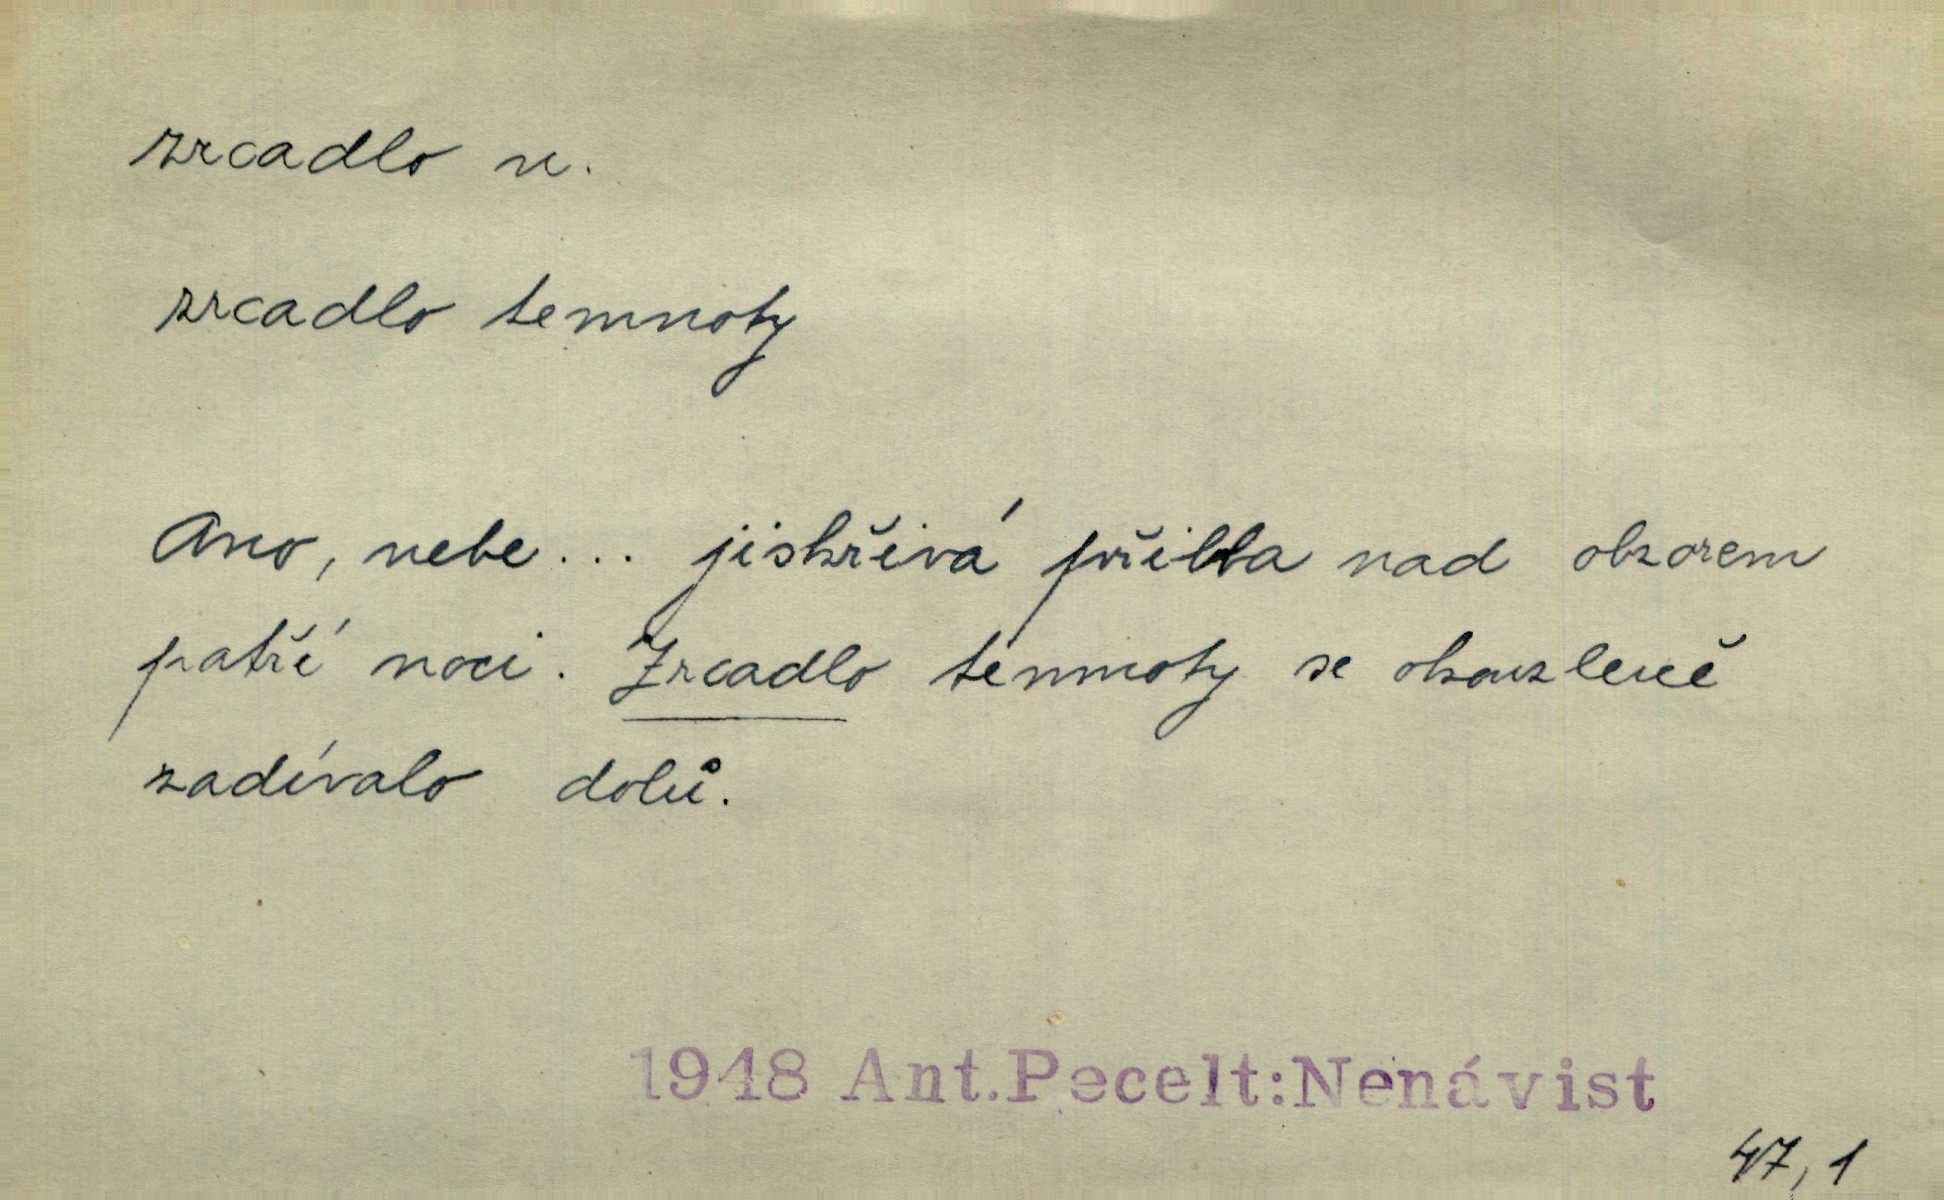 zrcadlo n.
zrcadlo temnoty
Ano, nebe... jiskřivá přilba nad obzorem
patří noci. Zrcadlo temnoty se okouzleně
zadívalo dolů.
1948 Ant.Pecelt:Nenávist
47,1